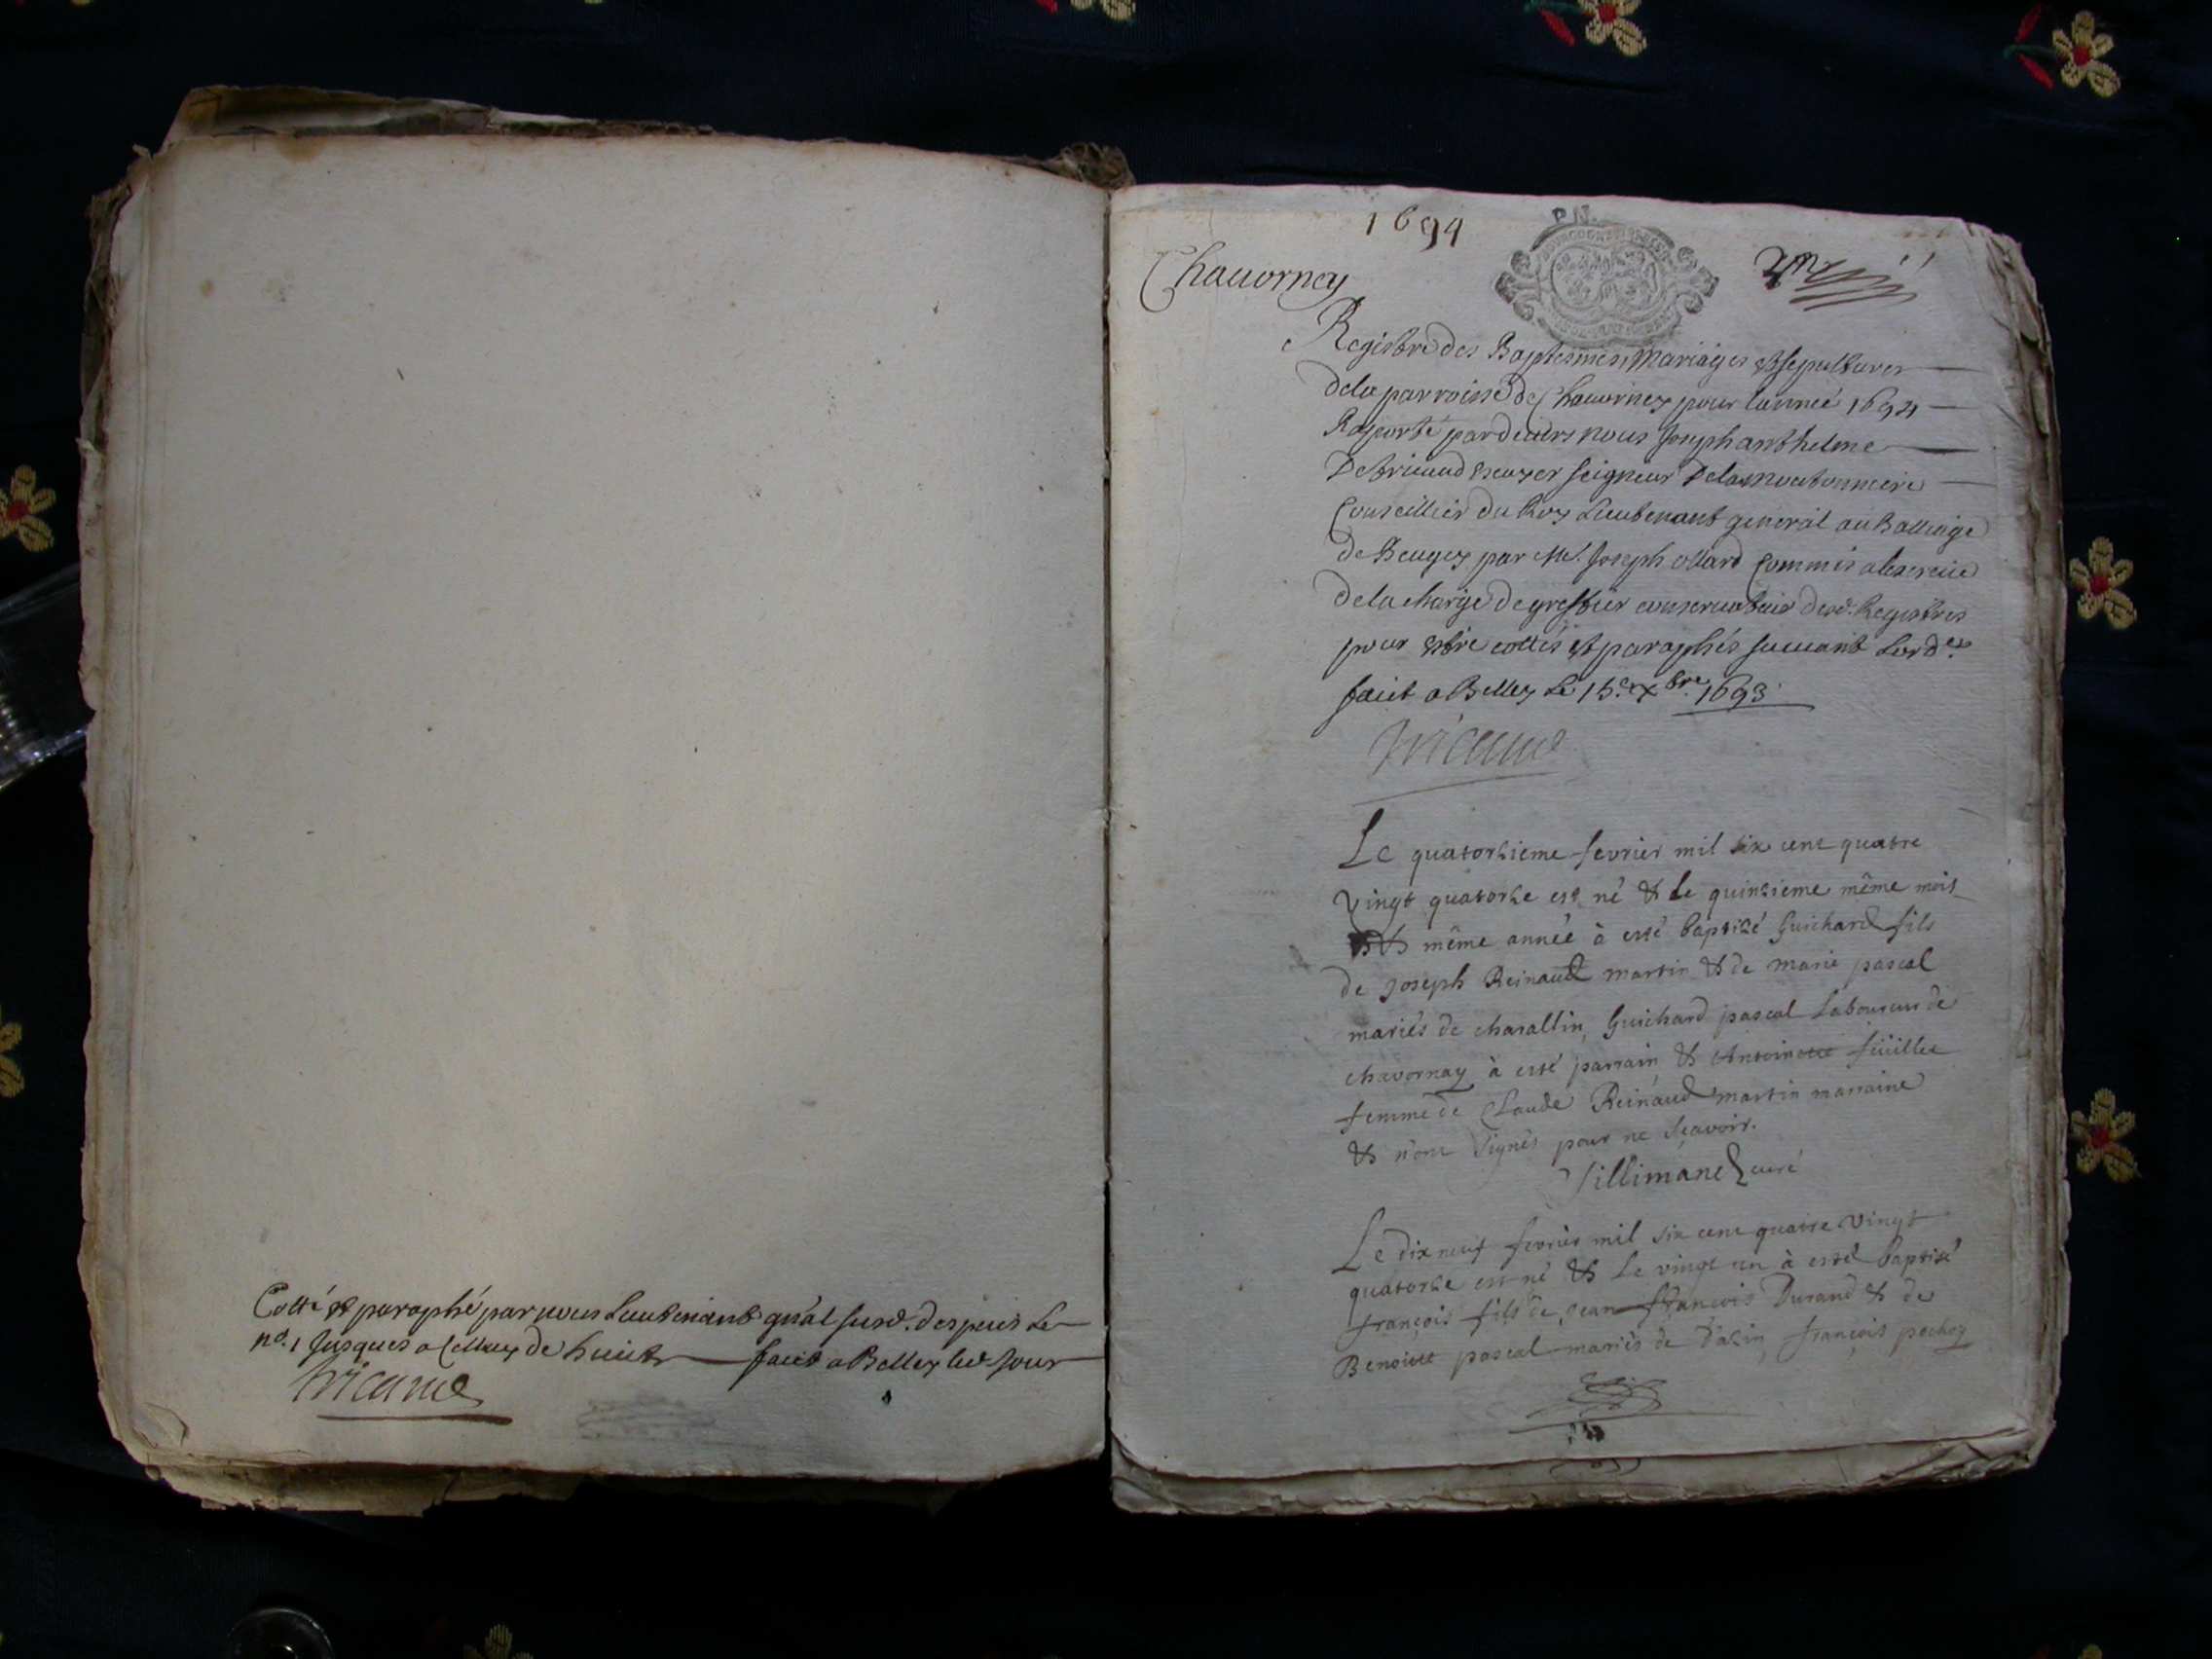 Cotté et paraphé par nous Lieutenant gñal susd. despuis Le
no. 1 Jusques a Celluy de huict faict a Belley led. Jour
Tricaud
1694
P.N.
Chauornay
Registre des Baptesmes, Mariages et sepultures
de la parroisse de Chauorney pour lannée 1694
Raporté pardeuers nous Joseph anthelme
De tricaud escuyer seigneur De la moutonniere
Conseillier du Roy Lieutenant general au Balliage
de Beugey par Me. Joseph ollard Commis a lexercice
de la charge de greffier conseruateur desd. Registres
pour estre cottés et paraphés suiuant Lord.
faict a Belley Le 15.e xbre. 1693
Tricaud
Le quatorzieme fevrier mil six cent quatre
vingt quatorze est né & le quinzieme même mois
& même année à esté baptizé Guichard fils
de Joseph Reinaud martin & de marie pascal
mariés de charallin, Guichard pascal Laboureur de
chavornay à esté parrain & Antoinette füillet
femme de Claude Reinaud martin marraine
& n'ont signés pour ne sçavoir.
Sillimand curé
Le dixneuf fevrier mil six cent quatre vingt
quatorze est né & Le vingt un à esté baptisé
françois fils de Jean françois Durand & de
Benoitte pascal mariés de Dazin, françois pochoy